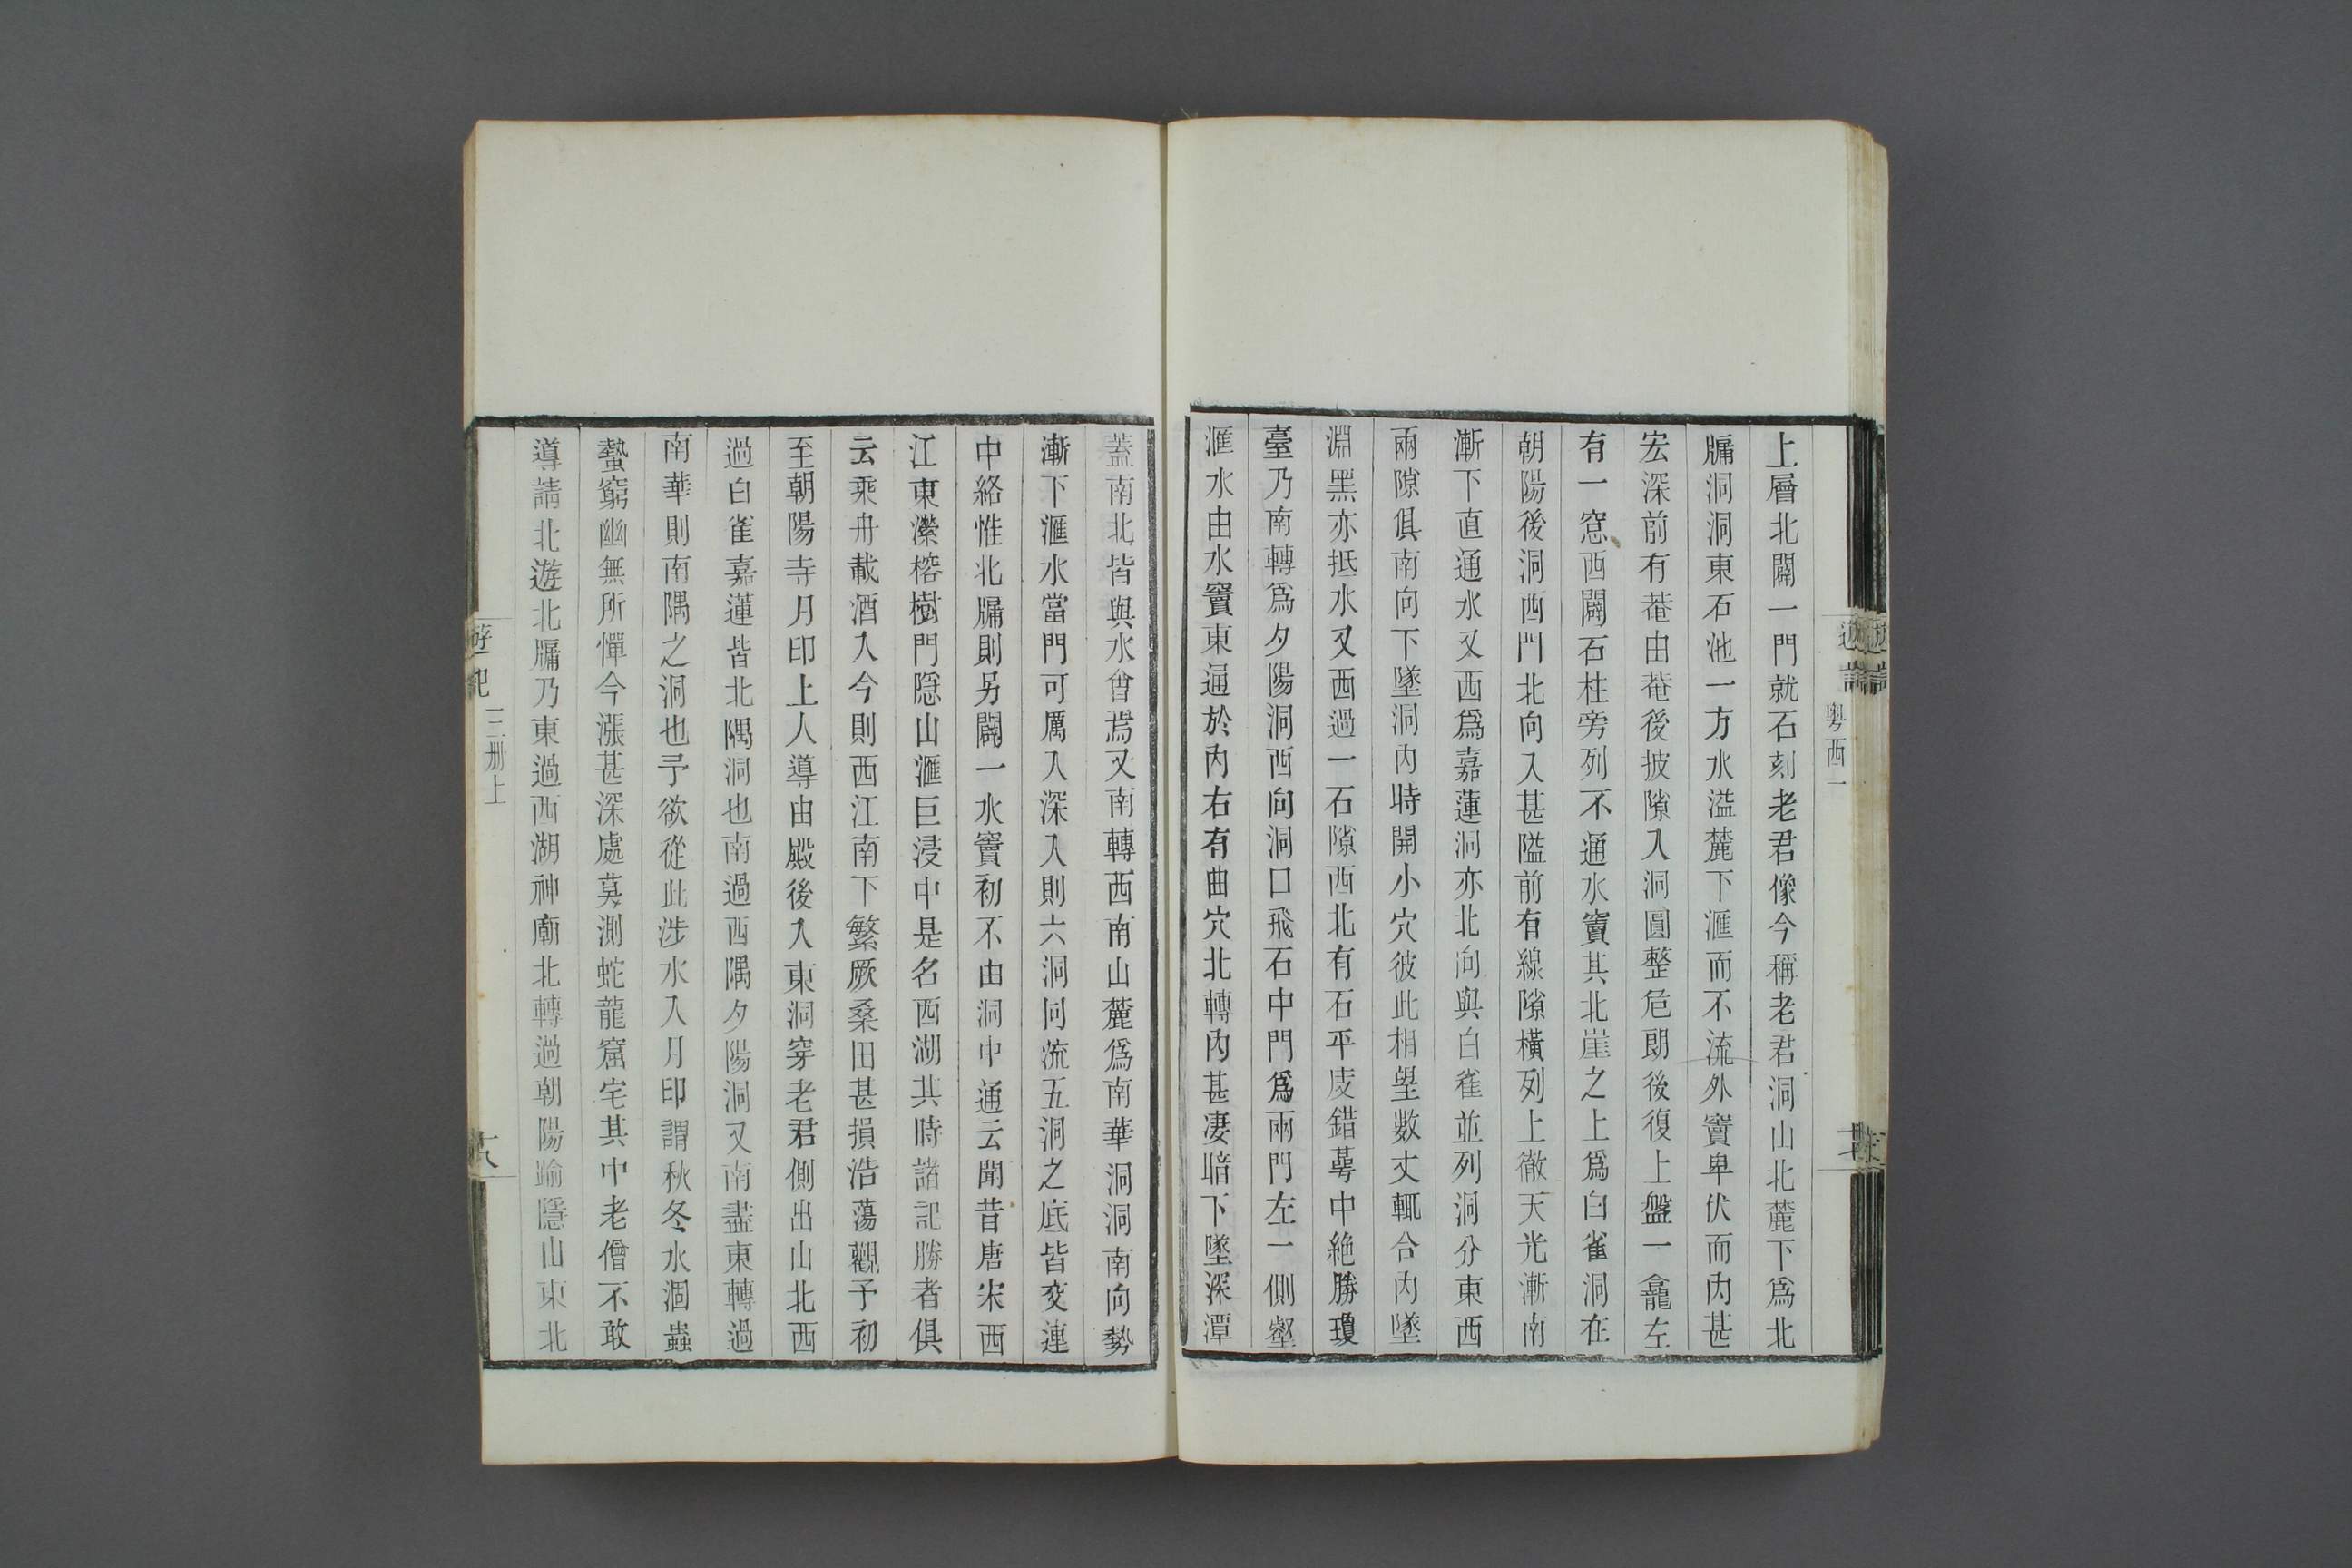 粤西一
上層北闢一門就石刻老君像今稱老君洞山北麓下爲北
牖洞洞東石池一方水溢麓下滙而不流外竇卑伏而內甚
宏深前有菴由菴後披隙入洞圓整危朗後復上盤一龕左
有一窓西闢石柱旁列不通水竇其北崖之上爲白雀洞在
朝陽後洞西門北向入甚隘前有線隙橫列上徹天光漸南
漸下直通水又西爲嘉蓮洞亦北向與白雀並列洞分東西
兩隙俱南向下墜洞內時開小穴彼此相望數丈輒合內墜
淵黑亦抵水又西過一石隙西北有石平庋錯蕚中絶勝瓊
臺乃南轉爲夕陽洞西向洞口飛石中門爲兩門左一側壑
滙水由水竇東通於內右有曲穴北轉內甚凄暗下墜深潭
蓋南北皆與水會焉又南轉西南山麓爲南華洞洞南向勢
漸下滙水當門可厲入深入則六洞同流五洞之底皆交連
中絡惟北牖則另闢一水竇初不由洞中通云聞昔唐宋西
江東瀠榕樹門隱山滙巨浸中是名西湖其時諸記勝者俱
云乘舟載酒入今則西江南下繁厥桑田甚損浩蕩觀予初
至朝陽寺月印上人導由殿後入東洞穿老君側出山北西
過白雀嘉蓮皆北隅洞也南過西隅夕陽洞又南盡東轉過
南華則南隅之洞也予欲從此涉水入月印謂秋冬水涸蟲
蟄窮幽無所憚今漲甚深處莫測蛇龍窟宅其中老僧不敢
導請北遊北牖乃東過西湖神廟北轉過朝陽踰隱山東北
遊記
三册上
十八